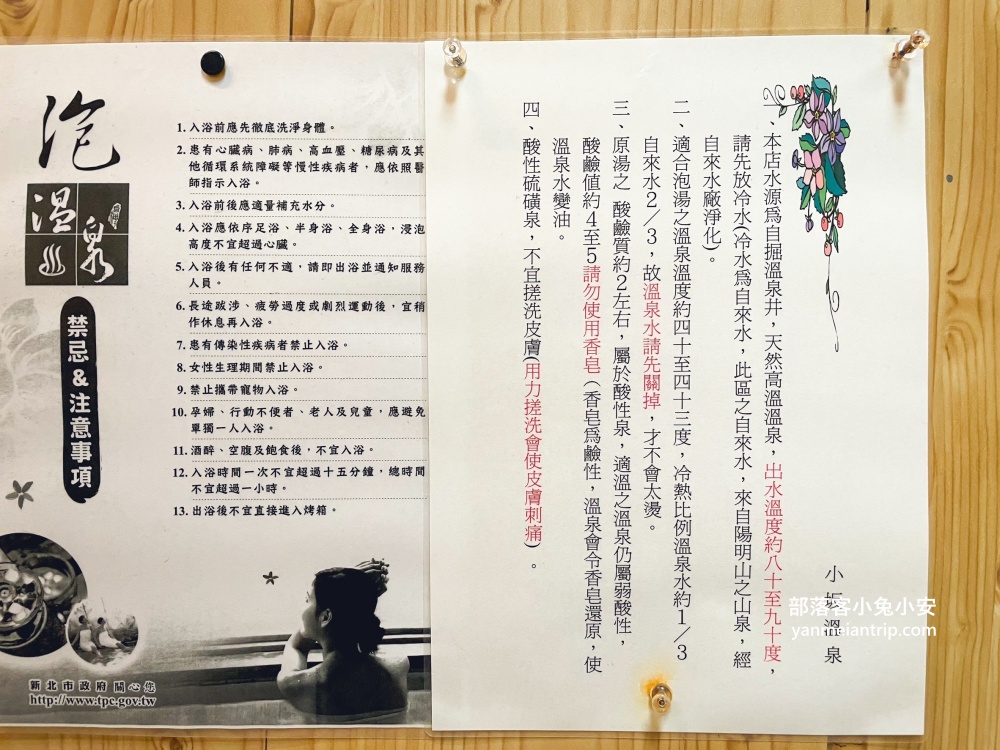 泡
溫泉
禁忌&注意事項
1. 入浴前應先徹底洗淨身體。
2. 患有心臟病、肺病、高血壓、糖尿病及其
他循環系統障礙等慢性疾病者,應依照醫
師指示入浴。
3. 入浴前後應適量補充水分。
4. 入浴應依序足浴、半身浴、全身浴,浸泡
高度不宜超過心臟。
5. 入浴後有任何不適,請即出浴並通知服務
人員。
6. 長途跋涉、疲勞過度或劇烈運動後,宜稍
作休息再入浴。
7. 患有傳染性疾病者禁止入浴。
8. 女性生理期間禁止入浴。
9. 禁止攜帶寵物入浴。
10. 孕婦、行動不便者、老人及兒童,應避免
單獨一人入浴。
11. 酒醉、空腹及飽食後,不宜入浴。
12. 入浴時間一次不宜超過十五分鐘,總時間
不宜超過一小時。
13. 出浴後不宜直接進入烤箱。
新北市政府關心您
http://www.tpc.gov.tw
一、本店水源爲自掘溫泉井,天然高溫溫泉,出水溫度約八十至九十度,
請先放冷水(冷水爲自來水,此區之自來水,來自陽明山之山泉,經
自來水廠淨化)。
二、適合泡湯之溫泉溫度約四十至四十三度,冷熱比例溫泉水約1/3
自來水2/3,故溫泉水請先關掉,才不會太燙。
三、原湯之 酸鹼質約2左右,屬於酸性泉,適溫之溫泉仍屬弱酸性,
酸鹼值約4至5請勿使用香皂(香皂爲鹼性,溫泉會令香皂還原,使
溫泉水變油。
四、酸性硫磺泉,不宜搓洗皮膚(用力搓洗會使皮膚刺痛)。
小坂溫泉
部落客小兔小安
yanmeiantrip.com